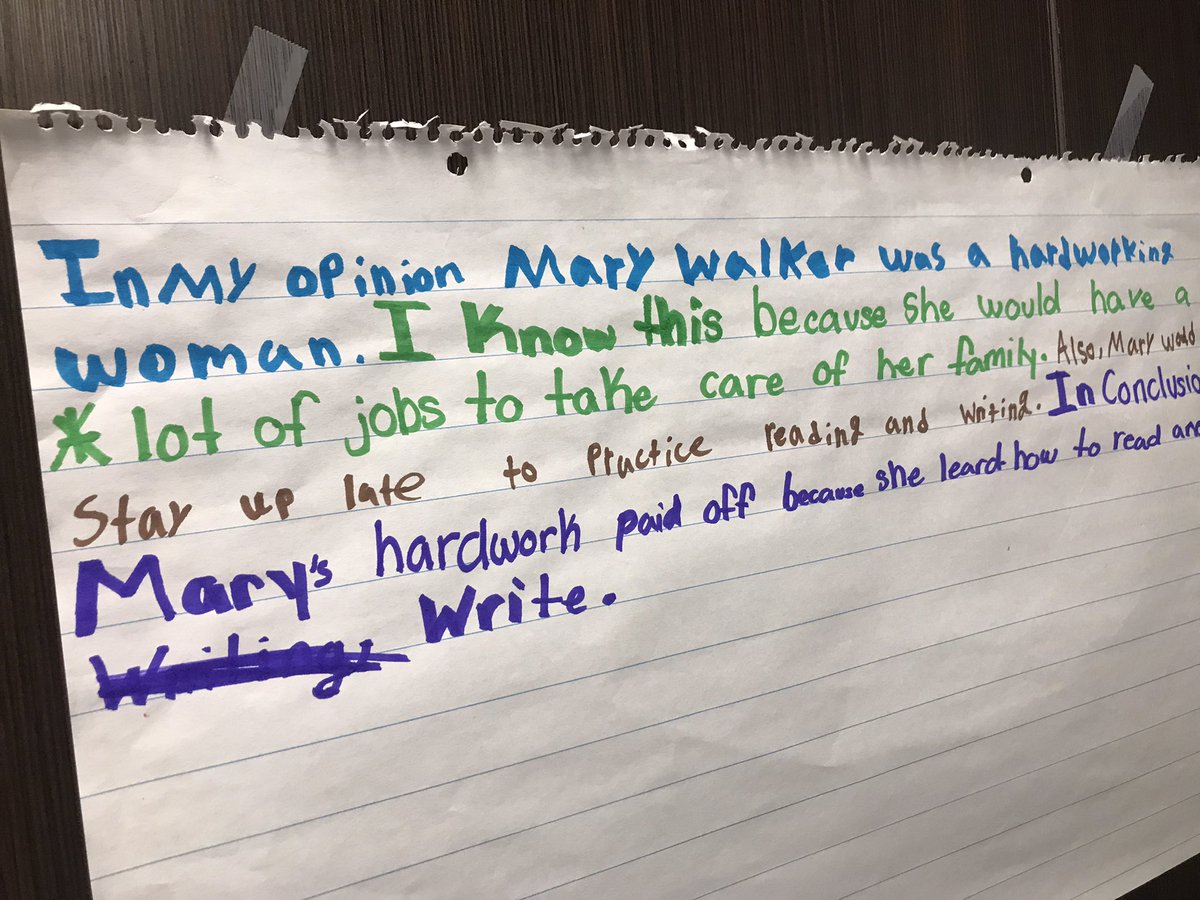 In My opinion Mary Walker was a hardworking
woman. I Know this because she would have a
* lot of jobs to take care of her family. Also, Mary
Stay up late to Practice reading and writing. In
Mary's hardwork paid off because she leard how to read and
Write.